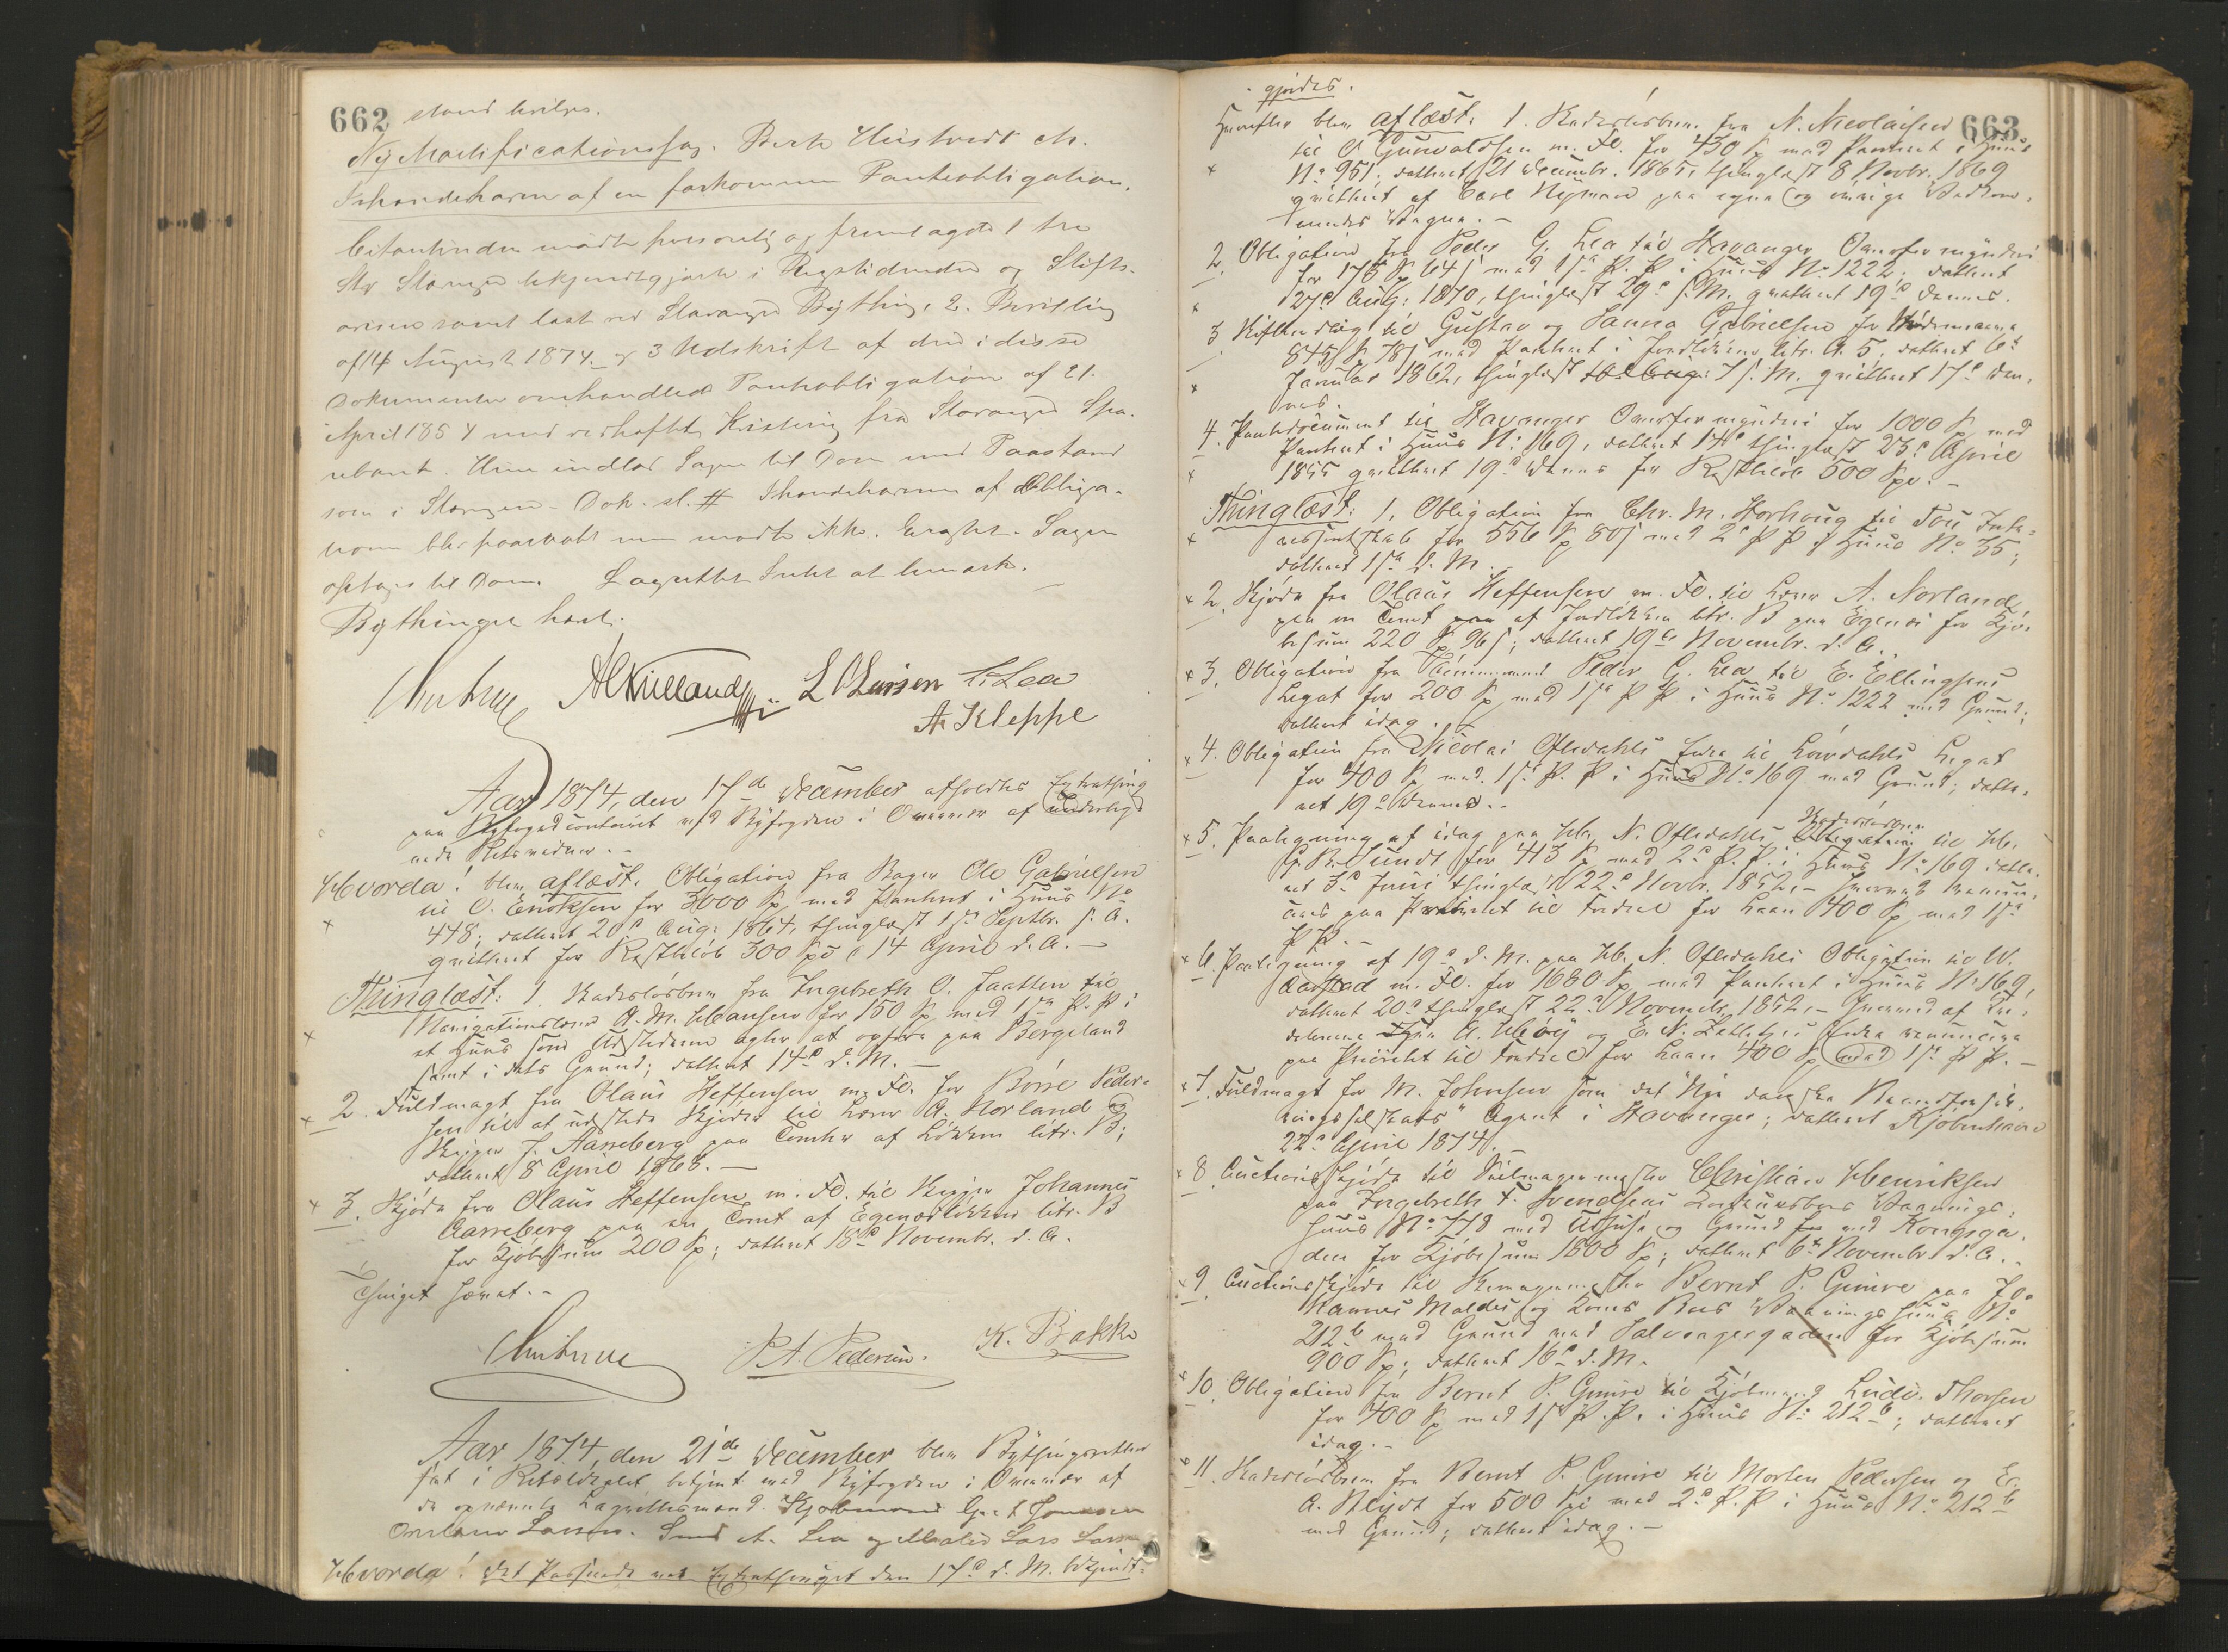 662 stand hviler.
Ny Mortificationssag. Berte Hustvedt ctr.
Ihændehaver af en forkommen Panteobligation.
Citantinden mødte personlig og fremlagde 1 tre
Str Stævning bekjendtgjort i Rigstidenden og Stifts-
avisen samt læst ved Stavanger Bything, 2. Bevilling
af 14 August 1874 og 3 Udskrift af den i disse
Dokumenter omhandlede Panteobligation af 21.
April 1854 med vedhæftet Kvittering fra Stavanger Spa-
rebank. Hun indlod Sagen til Dom med Paastand
som i Stævningen. Dok. sl. # Ihændehaveren af Obliga-
tionen blev paaraabt men mødte ikke. Sagen
optages til Dom. Lagrettet Intet at bemærke.
Bythinget hævet.
A Kielland L O Larsen L. Lea
A. Kleppe
Aar 1874, den 17de December afholdtes Extrathing
paa Byfogedcontoiret ved Byfogden i Overvær af underteg-
nede Retsvidner. -
Hvorda! blev aflæst. Obligation fra Bager Ole Gabrielsen
til O. Enoksen for 3000 Sp med Panteret i Huus No
448; dateret 20de Aug: 1864, thinglæst 1ste Septbr. s. A.
qvitteret for Restbeløb 300 Spd 14 April d. A. -
Thinglæst: 1. Skadesløsbrev fra Ingebreth O. Jaatten til
Navigationslærer A. M. Hansen for 150 Sp med 1ste P. Pr i
et Huus som Udstederen agter at opføre paa Bergeland
samt i dets Grund; dateret 14de d. M. -
2. Fuldmagt fra Olaus Steffensen m. Fl. for Børre Peder-
sen til at udstede Skjøder til Lærer A. Norland og
Skipper J. Aarreberg paa Tomter af Løkken litr. B;
dateret 8 April 1868. -
3. Skjøde fra Olaus Steffensen m. Fl. til Skipper Johannes
Aarreberg paa en Tomt af Egenæsløkken litr. B
for Kjøbesum 200 Sp; dateret 18de Novembr. d. A.
Thinget hævet. -
P. A. Pedersen. K. Bakke
Aar 1874, den 21de December blev Bythingsretten
sat i Retslokalet betjent med Byfogden i Overvær af
de opnævnte Lagrettesmænd. Kjøbmænd
Larsen. A. Lea og Maler Lars Larsen
Hvorda! Det Passerede ved Extrathinget den 17de d. M. bekjendt-
663
gjordes.
Herefter blev aflæst. 1. Skadesløsbrev fra N. Nicolaisen
til O Gunvaldsen m. Fl. for 430 Sp med Panteret i Huus
No 951. dateret 21 Decembr. 1865, thinglæst 8 Novbr. 1869
qvitteret af Carl Nyman paa egne og øvrige Vedkom-
mendes Vegne. -
2 Obligation fra Peder G. Lea til Stavanger Overformynderi
for 175 Sp 64 s med 1ste P. Pr i Huus No 1222; dateret
27de Aug: 1870, thinglæst 29de s. M. qvitteret 19de dennes.
3 Udlæg til Gustav og Hanna Gabrielsen for
845 Sp 78 s med Panteret i Jordløkken litr. A. 5, dateret 6te
Januar 1862, thinglæst s. M. qvitteret 17de den-
nes.
4. Pantedocument til Stavanger Overformynderi for 1000 Sp med
Panteret i Huus No 169, dateret 17de thinglæst 23de April
1855 qvitteret 19de dennes for Restbeløb 500 Spd. -
Thinglæst: 1. Obligation fra Chr. M. Horhoug til Tou Inte-
ressentskab for 556 Sp 80 s med 2de P Pr i Huus No 35;
dateret 15de d. M.
2. Skjøde fra Olaus Steffensen m. Fl. til Lærer A. Norland
paa en Tomt af Jordløkken litr. B paa Egenæs for Kjø-
besum 220 Sp 96 s; dateret 19de Novembr. d. A.
3. Obligation fra Tømmermand Peder G. Lea til E. Ellingsens
Legat for 200 Sp med 1ste P Pr i Huus No 1222 med Grund;
dateret idag. -
4. Obligation fra Nicolai Oftedahls Enke til Løvdahls Legat
for 400 Sp med 1ste P. Pr i Huus No 169 med Grund; date-
ret 19de dennes. -
5. Paategning af idag paa Hr. N. Oftedahls Skadesløsbrev Obligation til Hr.
G. B. Sundt for 413 Sp med 2de P. Pr. i Huus No 169 date-
ret 3de Juni thinglæst 22de Novbr. 1852, -
paa Prioritet til Fordeel for Laan 400 Sp med 1ste
P Pr. -
6. Paategning af 19de d. M. paa Hr. N. Oftedahls Obligation til W.
Aarstad m. Fl. for 1680 Sp med Panteret i Huus No 169,
dateret 20de thinglæst 22de Novembr. 1852, -
A. Hoÿ og E. N. Enke renuncere
paa Prioritet til Fordeel for Laan 400 Sp med 1ste P Pr. -
7. Fuldmagt for M. Johnsen som det "Nye danske Brandforsik-
ringsselskabs" Agent i Stavanger; dateret Kjøbenhavn
22de April 1874. -
8. Auctionsskjøde til Seilmagermester Christian Henriksen
paa Ingebreth T. Svendsens Vaanings-
huus No 778 med Udhuse og Grund ved Kongsga-
den for Kjøbesum 1600 Sp; dateret 6te Novembr. d. A. -
9. Auctionsskjøde til Bernt P. Gimre paa Jo-
hannes Maldes og Kones Bus Vaaningshuus No
212b med Grund ved Salvagergaden for Kjøbesum
900 Sp; dateret 16de d. M.
10. Obligation fra Bernt P. Gimre til Kjøbmand Ludv. Thorsen
for 400 Sp med 1ste P. Pr. i Huus No 212b; dateret
idag. -
11. Skadesløsbrev fra Bernt P. Gimre til Morten Pedersen og E.
A. for 500 Spd med 2de P. Pr i Huus No 212b
med Grund; dateret idag. -